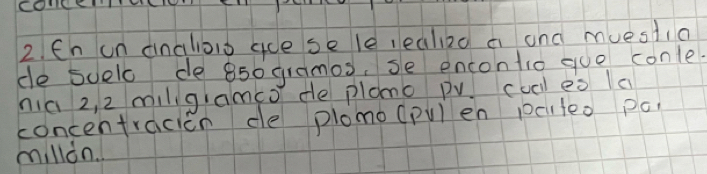 concentración en
2. En un analisis que se le realizo a una muestra
de suelo de 850 gramos, se encontro que conte-
nia 2,2 miligramos de plomo pv. cual es la
concentración de plomo (pv) en partes por
millón.